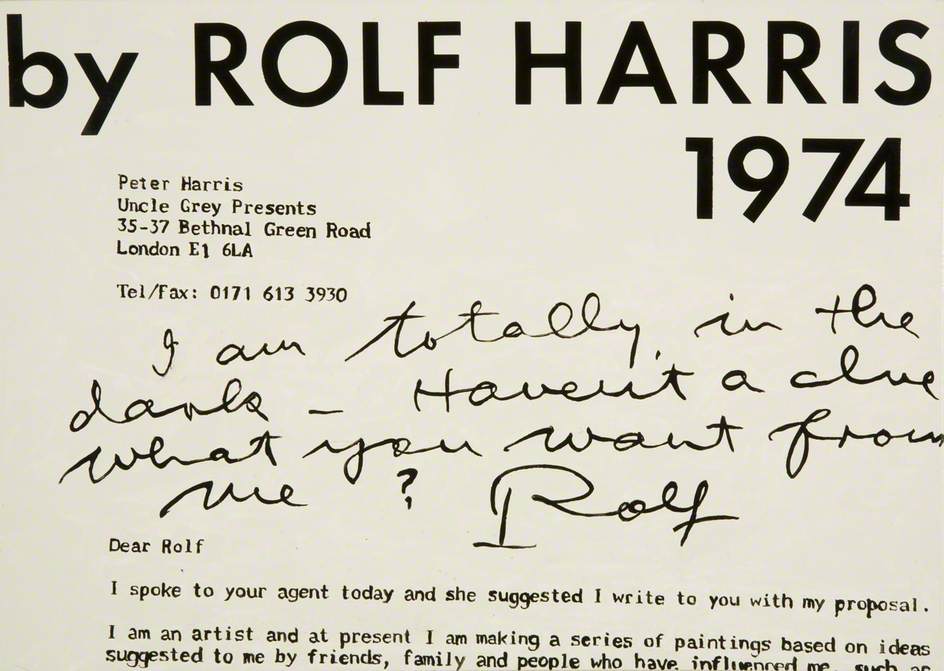 by ROLF HARRIS
1974
Peter Harris
Uncle Grey Presents
35-37 Bethnal Green Road
London E1 6LA
Tel/Fax: 0171 613 3930
I am totally in the
dark - Haven't a clue
what you want from
me ? Rolf
Dear Rolf
I spoke to your agent today and she suggested I write to you with my proposal.
I am an artist and at present I am making a series of paintings based on ideas
suggested to me by friends, family and people who have influenced me, such as